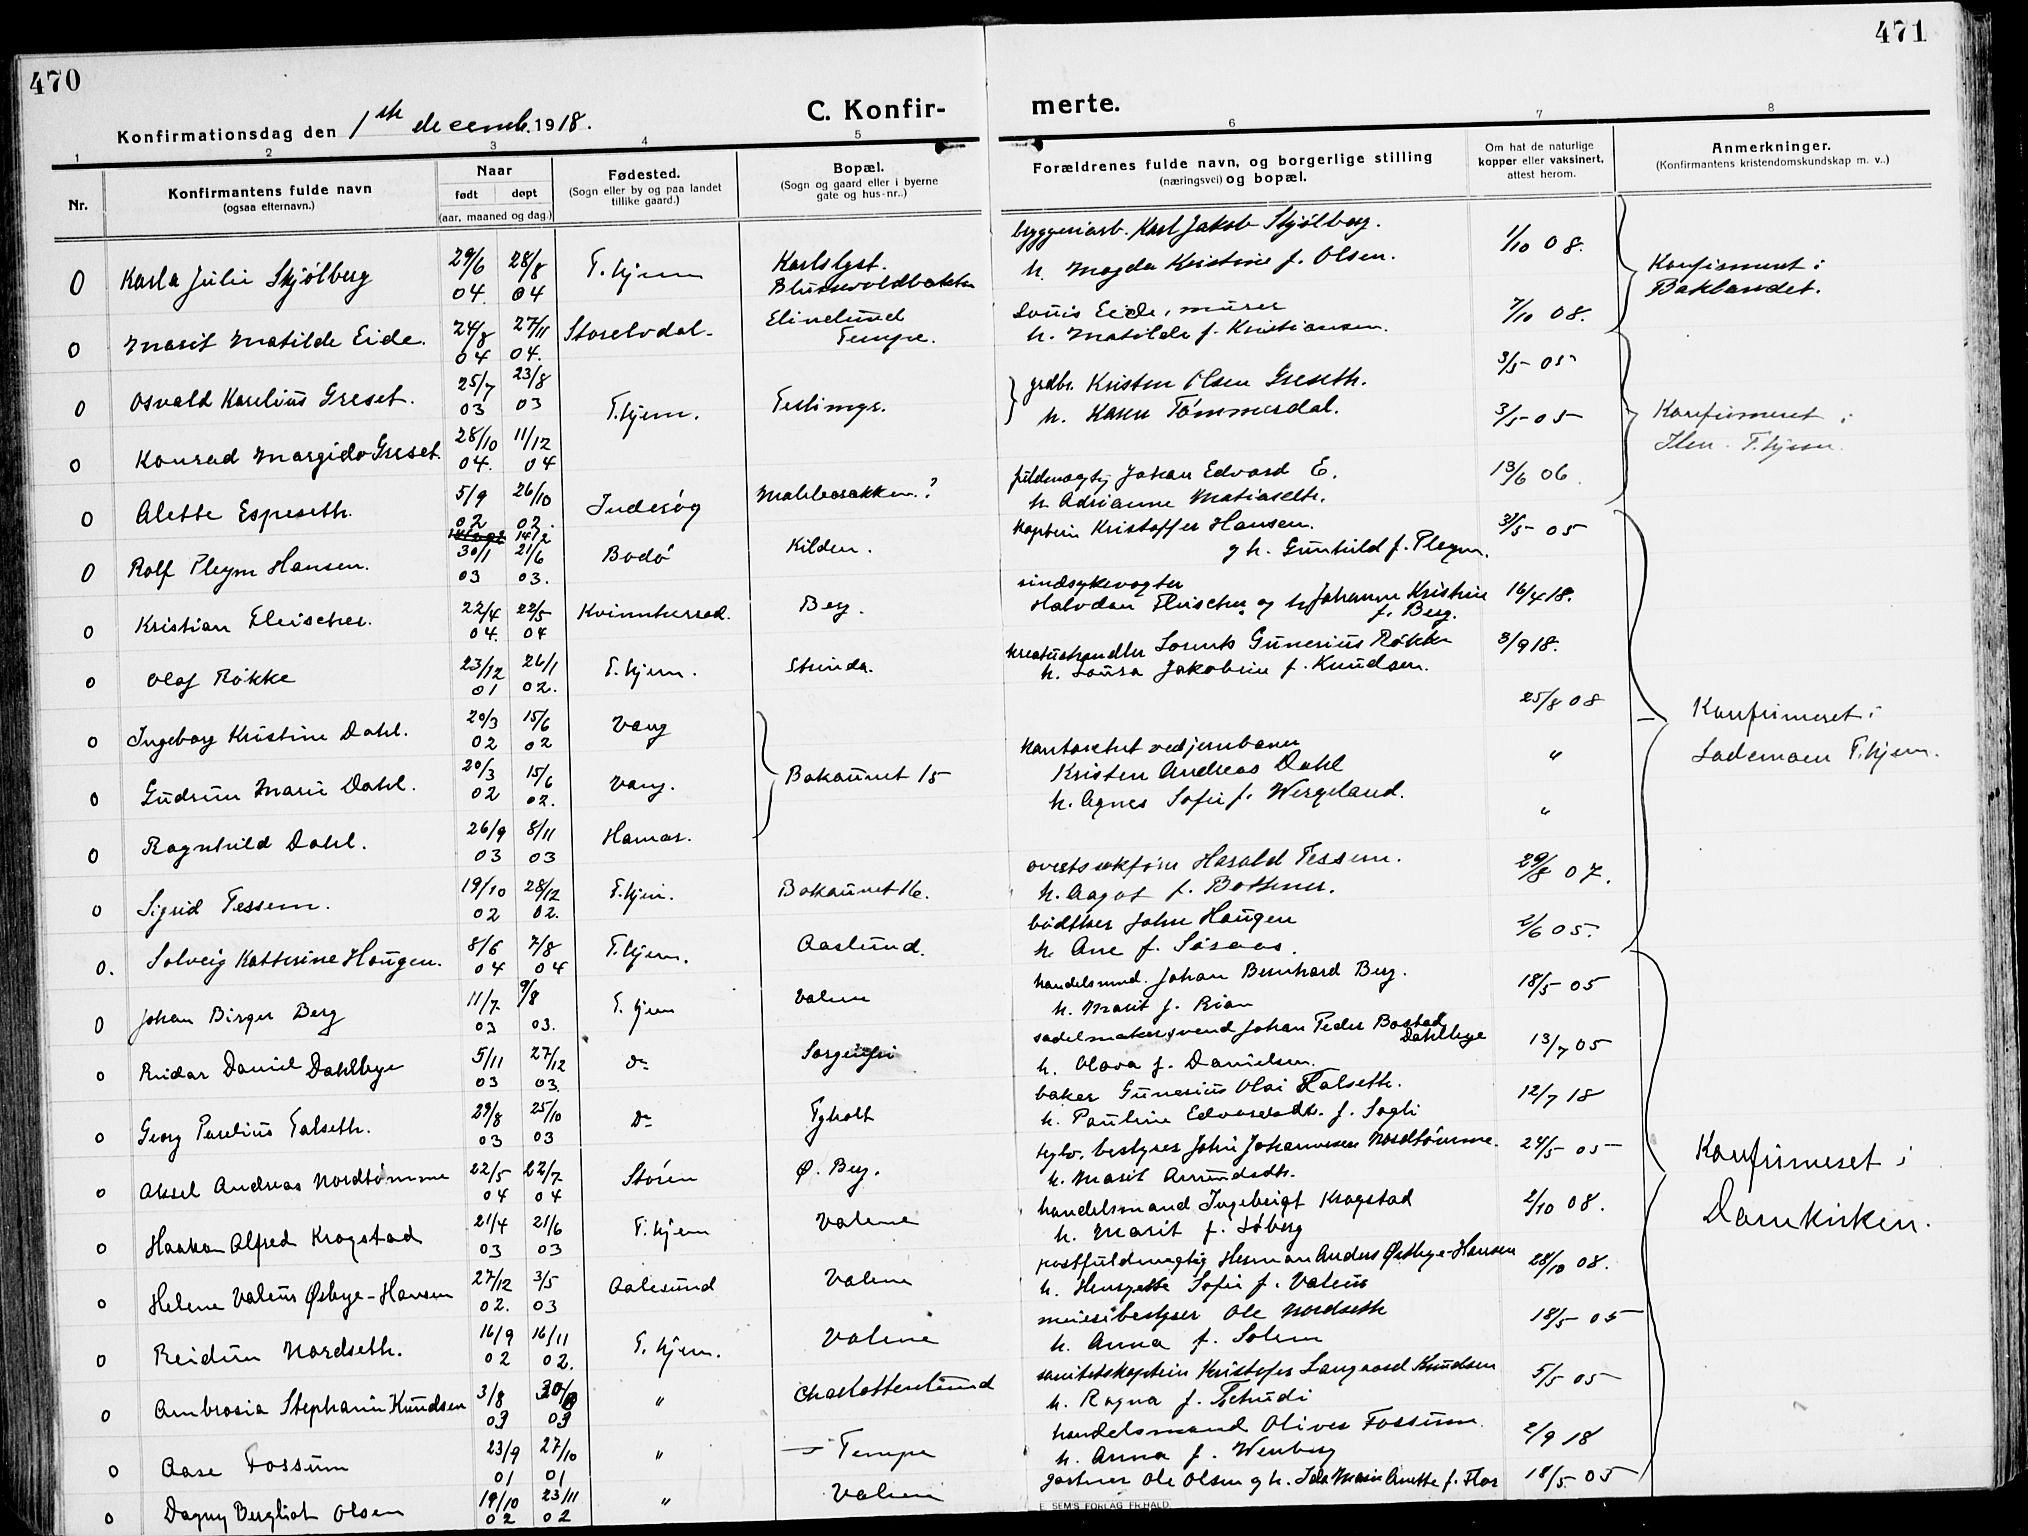 470
471
Konfirmationsdag den 1ste decemb. 1918.
C. Konfir-
merte.
1 2 3 4 5 6 7 8
Nr.
Konfirmantens fulde navn
(ogsaa efternavn.)
Naar
født døpt
(aar, maaned og dag.)
Fødested.
(Sogn eller by og paa landet
tillike gaard.)
Bopæl.
(Sogn og gaard eller i byerne
gate og hus-nr..)
Forældrenes fulde navn, og borgerlige stilling
(næringsvei) og bopæl.
Om hat de naturlige
kopper eller vaksinert,
attest herom.
Anmerkninger.
(Konfirmantens kristendomskundskap m. v..)
0 Karla Julie Skjølberg 29/6 04. 28/8 04 T.hjem Karlslyst. Blussevoldbakken
byggeriarb. Karl Jakob Skjølberg.
h. Magda Kristine f. Olsen. 1/10 08.
Konfirmeret i
Baklandet.
0 Marit Matilde Eide. 24/8 04 27/11 04. Storelvdal. Elinelund Tempe.
Louis Eide, murer
h. Matilde f. Kristiansen. 7/10 08.
0 Osvald Karelius Greset. 25/7 03 23/8 03 T.hjem.
grdbr. Kristen Olsen Greseth.
h. Karen Tømmerdal. 3/5 05
Konfirmeret i
Ilen. T.hjem.
0 Konrad Margido Greset. 28/10 04. 11/12 04 3/5 05
0 Alette Espeseth. 5/9 02 26/10 02. Inderøy
fuldmægtig Johan Edvard E.
h. Adrianne Matiasdtr. 13/6 06.
0 Rolf Pleym Hansen. 30/1 03 21/6 03. Bodø Kilden.
kaptein Kristoffer Hansen.
og h. Gunhild f. Pleym. 3/5 05
0 Kristian Fleischer. 22/4 04. 22/5 04 Kvinnherred. Berg.
sindsykevogter
Halvdan Fleischer og h. Johanne Kristine
f. Berg. 16/4 18.
0 Olaf Røkke 23/12 01 26/1 02. T.hjem. Strinda.
kreaturhandler Lorents Gunerius Røkke
h. Lovisa Jakobine f. Knudsen. 3/9 18.
0 Ingeborg Kristine Dahl. 20/3 02 15/6 02 Vang 25/8 08
Konfirmeret i
Lademoen T.hjem.
0 Gudrun Marie Dahl. 20/3 02 15/6 02. Vang. Bakaunet 15
kontorchef ved jernbanen
Kristen Andreas Dahl
h. Agnes Sofie f. Wergeland. "
0 Ragnhild Dahl. 26/9 03 8/11 03 Hamar. "
0 Sigrid Tessem. 19/10 02 28/12 02. T.hjem. Bakaunet 16.
overretssakfører Harald Tessem.
h. Aagot f. Bothner. 29/8 07.
0. Solveig Katherine Haugen. 8/6 04 7/8 04 T.hjem. Aaslund.
bødtker John Haugen
h. Ane f. Søraas. 2/6 05.
0 Johan Birger Berg 11/7 03 9/8 03. T.hjem Valene
handelsmd. Johan Bernhard Berg.
h. Marit f. Rian 18/5 05
0 Reidar Daniel Dahlbye 5/11 03 27/12 03. Do Sorgenfri
sadelmakersvend Johan Peder Bostad
Dahlbye
h. Olava f. Danielsen. 13/7 05
0 Georg Parelius Falseth. 29/8 03 25/10 03 Do Tyholt
baker Gunerius Olai Falseth.
h. Pauline Edvardsdtr. f. Sogli 12/7 18
0 Aksel Andreas Nordtømme 22/5 04 22/7 04 Støren Ø. Berg.
bestyrer John Johannesen Nordtømme.
h. Marit Amundsdtr. 24/5 05
Konfirmeret i
Domkirken.
0 Haakon Alfred Kragstad 21/4 03 21/6 03 T.hjem Valene
handelsmand Ingebrigt Kragstad
h. Marit f. Løberg 2/10 08.
0 Helene Valeur Østbye-Hansen 27/12 02. 3/5 03 Aalesund Valene
postfuldmægtig Herman Anders Østbye-Hansen
h. Henryette Sofie f. Valeur 28/10 08.
0 Reidun Nordseth. 16/9 02 16/11 02. T.hjem. Valene
meieribestyrer Ole Nordseth
h. Anna f. Solem 18/5 05
0 Ambrosia Stephanie Knudsen 3/8 03 03 " Charlottenlund
sanitetskaptein Kristofer Langaard Knudsen
h. Ragna f. Schudi 5/5 05
0 Aase Fossum 23/9 01 27/10 01 " Tempe
handelsmand Oliver Fossum.
h. Anna f. Wenberg 2/9 18
0 Dagny Bergliot Olsen 19/10 02 23/11 02 " Valene
gartner Ole Olsen og h. Ida Marie Anette f. Flor 18/5 05
E. SEM'S FORLAG FR.HALD